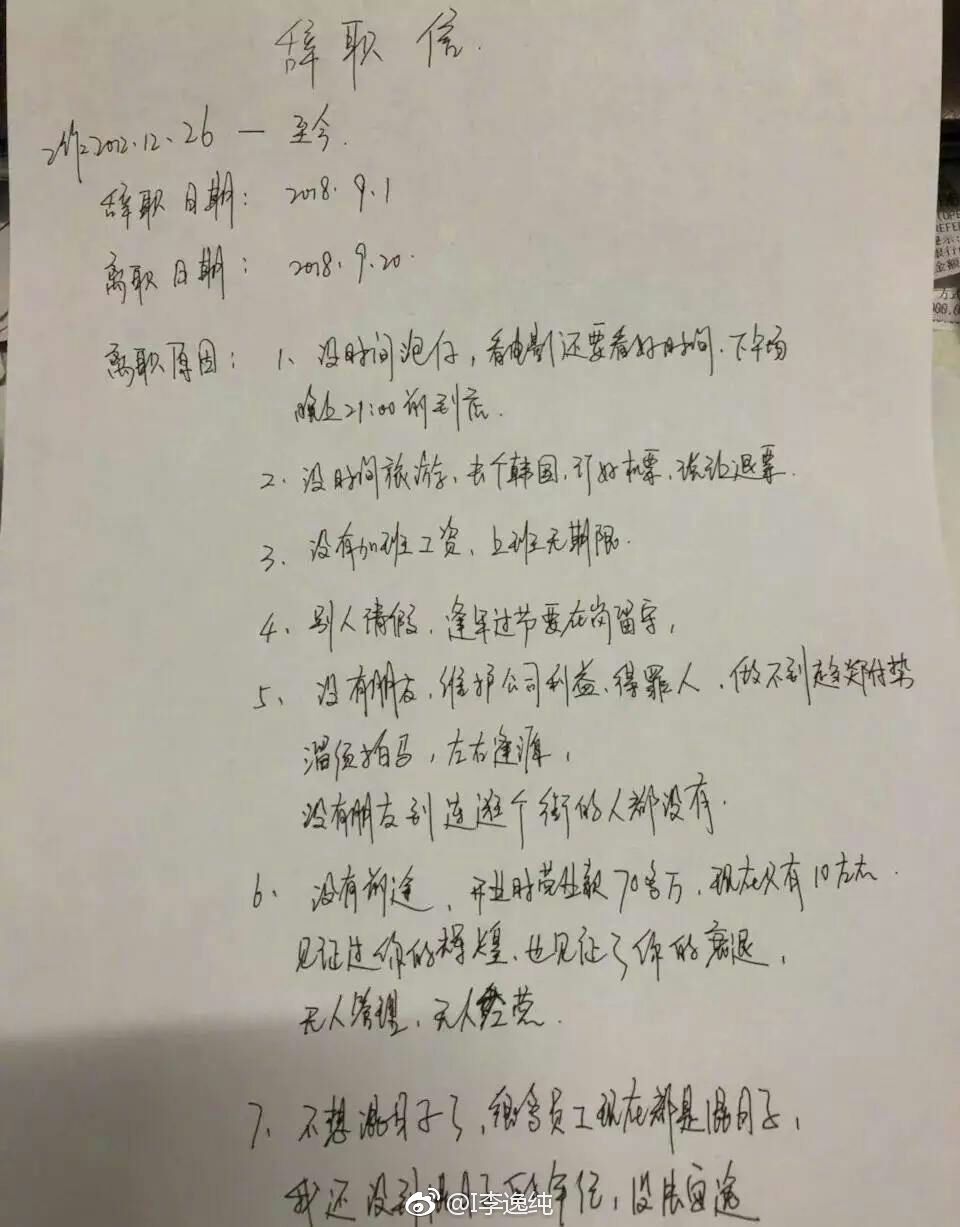 辞职信.
工作2012.12.26 — 至今.
辞职日期: 2018.9.1
离职日期: 2018.9.20.
离职原因: 1、没时间泡仔,看电影还要看好时间.下午场
晚上21:00前到店.
2、没时间旅游、去个韩国,订好机票,说让退票.
3、没有加班工资、上班无期限.
4、别人请假,逢年过节要在岗留守,
5、没有朋友,维护公司利益、得罪人,做不到趋炎附势
溜须拍马,左右逢源,
没有朋友到连逛个街的人都没有.
6、没有前途、开业时营业额70多万,现在只有10左右.
见证过你的辉煌、也见证了你的衰退,
无人管理、无人经营.
7、不想混日子了,很多员工现在都是混日子,
我还没到 年纪,没法
@I李逸纯